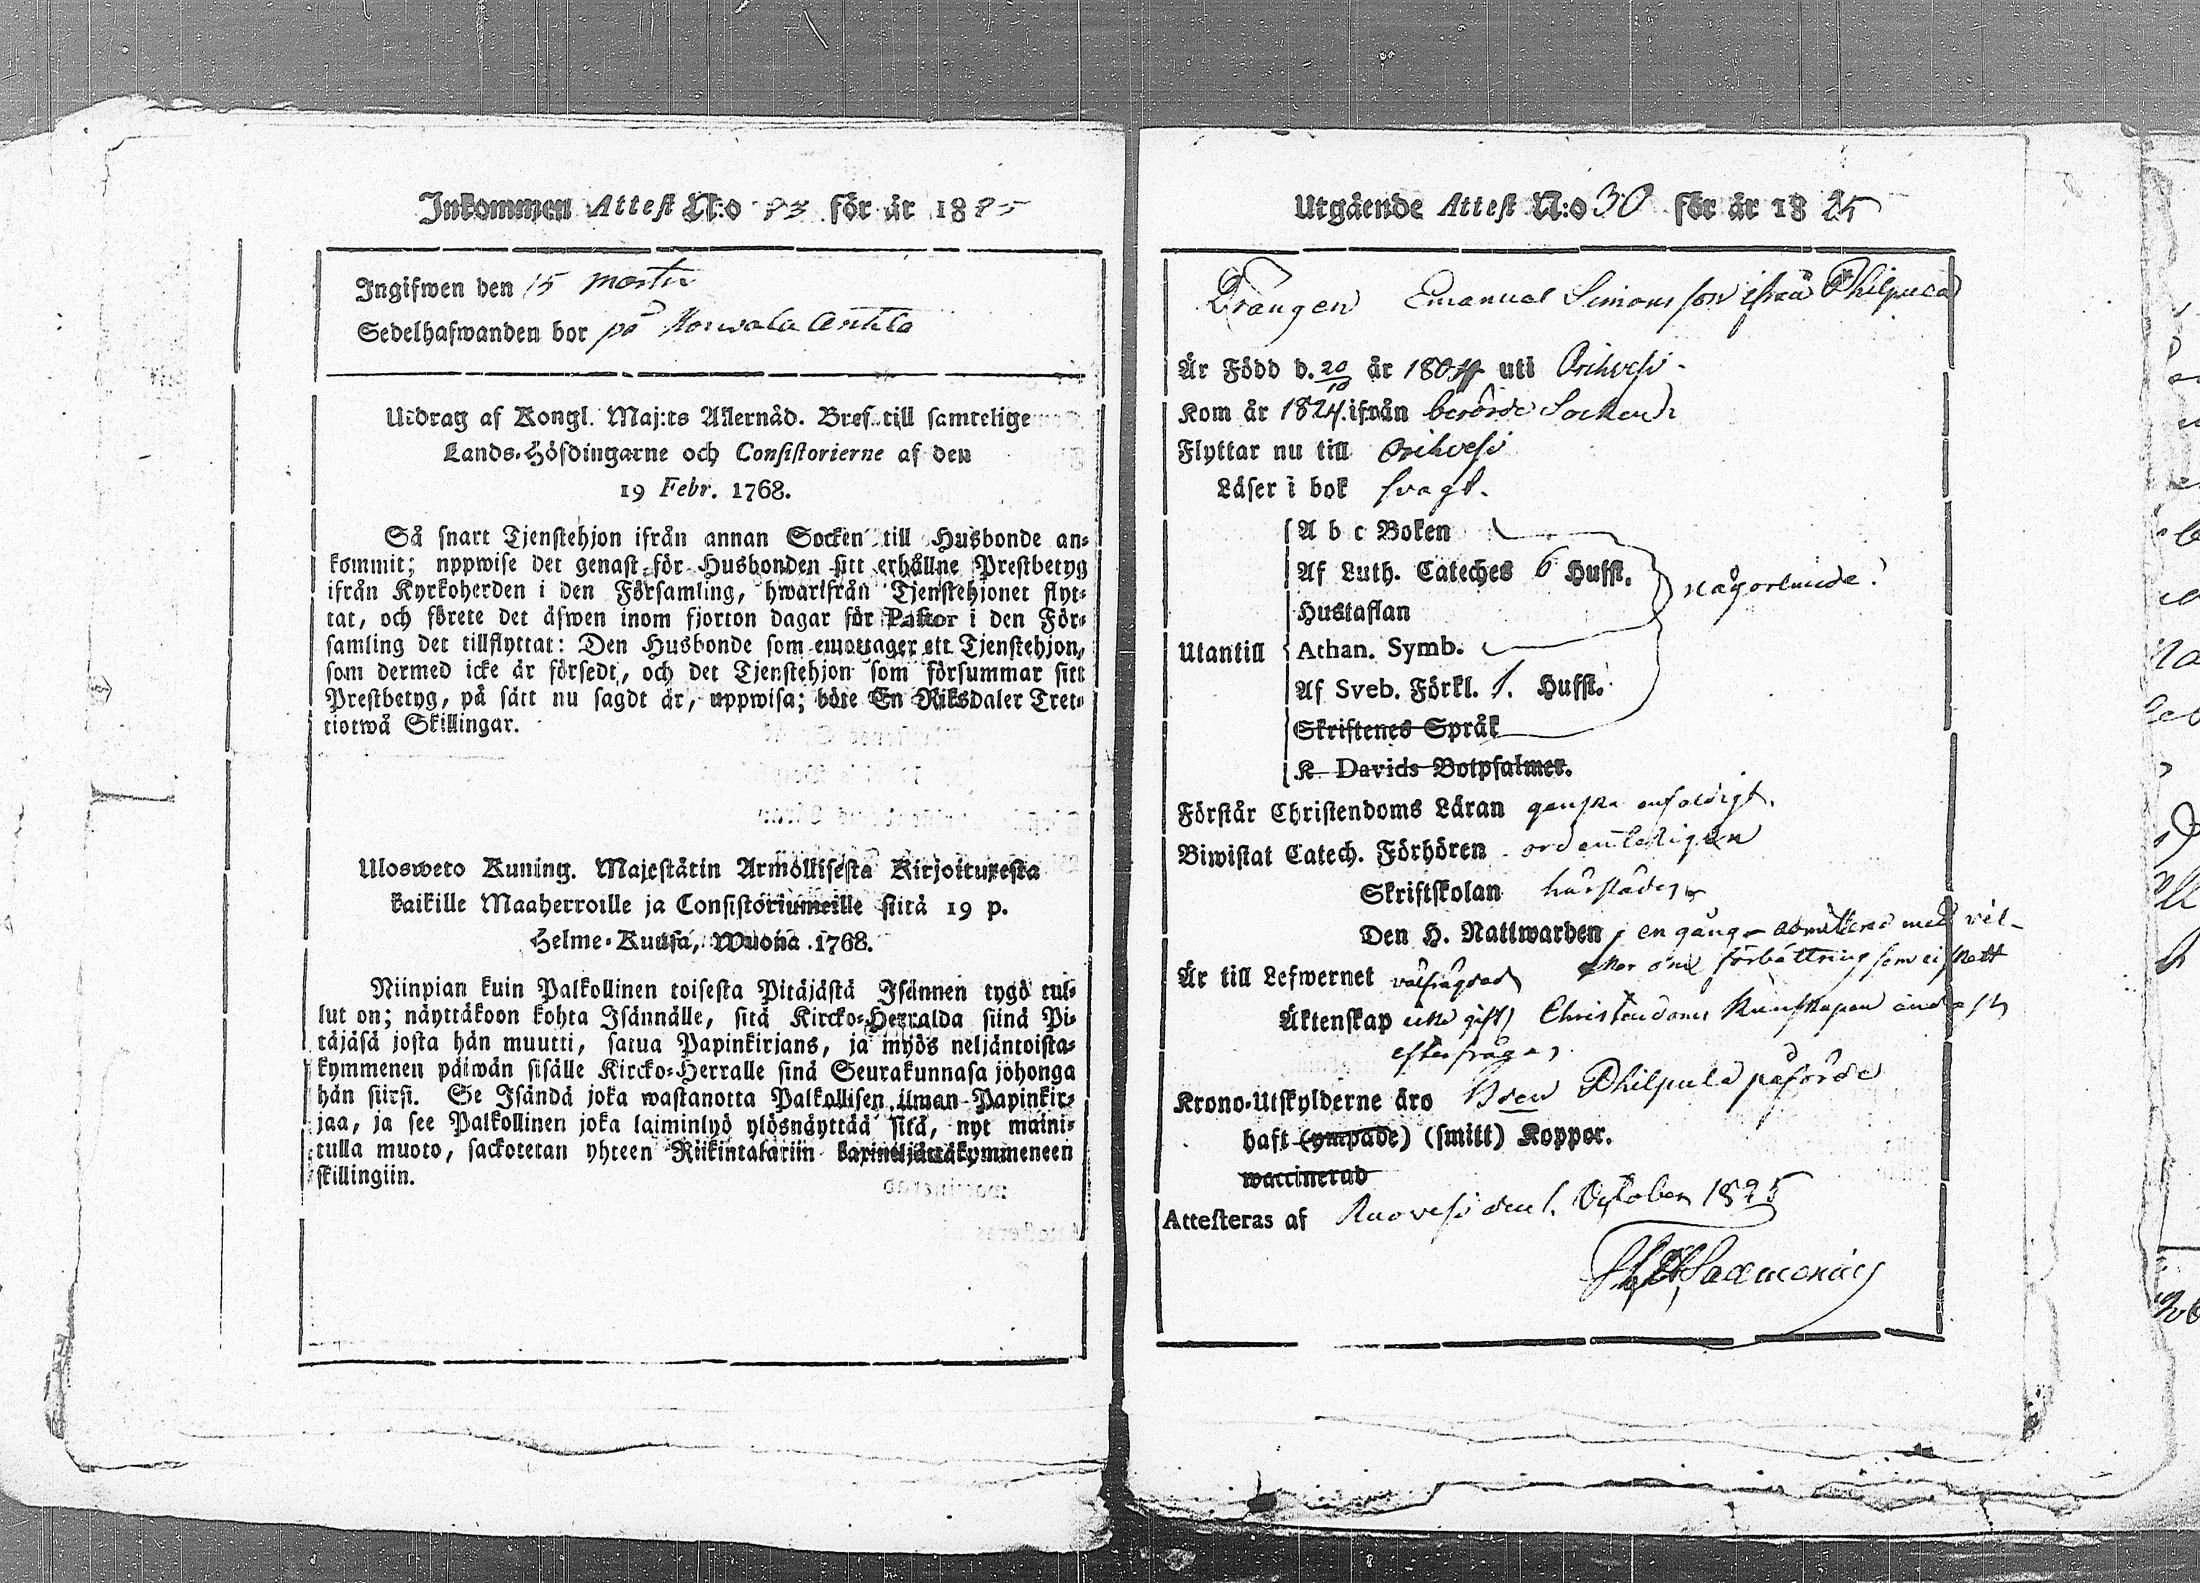 Inkommen Attest N:o 83 för år 1825
Ingifwen den 15 martii
Sedelhafwanden bor på Korwala Anttila
Utdrag af Kongl. Maj:ts Allernåd. Bref till samtelige
Lands-Höfdingarne och Consistorierne af den
19 Febr. 1768.
Så snart Tjenstehjon ifrån annan Socken till Husbonde an-
kommit; uppwise det genast för Husbonden sitt erhållne Prestbetyg
ifrån Kyrkoherden i den Församling, hwarifrån Tjenstehjonet flyt-
tat, och förete det äfwen inom fjorton dagar för Pastor i den För-
samling det tillflyttat: Den Husbonde som emottager ett Tjenstehjon,
som dermed icke är försedt, och det Tjenstehjon som försummar sitt
Prestbetyg, på sätt nu sagdt är, uppwisa; böte En Riksdaler Tret-
tiotwå Skillingar.
Ulosweto Kuning. Majestätin Armollisesta Kirjoituxesta
kaikille Maaherroille ja Consistoriumeille siitä 19 p.
Helme-Kuusa, Wuona 1768.
Niinpian kuin Palkollinen toisesta Pitäjästä Isännen tygö tul-
lut on; näyttäkoon kohta Isännälle, sitä Kircko-Herralda siinä Pi-
täjäsä josta hän muutti, satua Papinkirjans, ja myös neljäntoista-
kymmenen päiwän sisälle Kircko-Herralle sinä Seurakunnasa johonga
hän siirsi. Se Isändä joka wastanotta Palkollisen ilman Papinkir-
jaa, ja see Palkollinen joka laiminlyö ylösnäyttää sitä, nyt maini-
tulla muoto, sackotetan yhteen Riikintalariin kaxineljättäkymmeneen
skillingiin.
Utgående Attest N:o 30 för år 1825
Drängen Emanuel Simonsson ifrån Philpula
Är Född d. 20/10 år 1804 uti Orihvesi.
Kom år 1824. ifrån berörde Socken
Flyttar nu till Orihvesi
Läser i bok svagt.
A b c Boken
Af Luth. Cateches 6 Hufst. någorlunda.
Hustaflan
Utantill Athan. Symb.
Af Sveb. Förkl. 1. Hufst.
Skriftenes Språk
K Davids Botpsalmer.
Förstår Christendoms Läran ganska enfaldigt.
Biwistat Catech. Förhören ordenteligen
Skriftskolan härstädes
Den H. Nattwarden en gång admitterad med vil-
kor om förbättring som ej skett
Är till Lefwernet välfrägdad
Äktenskap icke gift, Christendoms Kunskapen endast
efterfrågas
Krono-Utskylderne äro Philpula påförde
haft (ympade) (smitt) Koppor.
waccinerad
Attesteras af Ruovesi den 1. October 1825